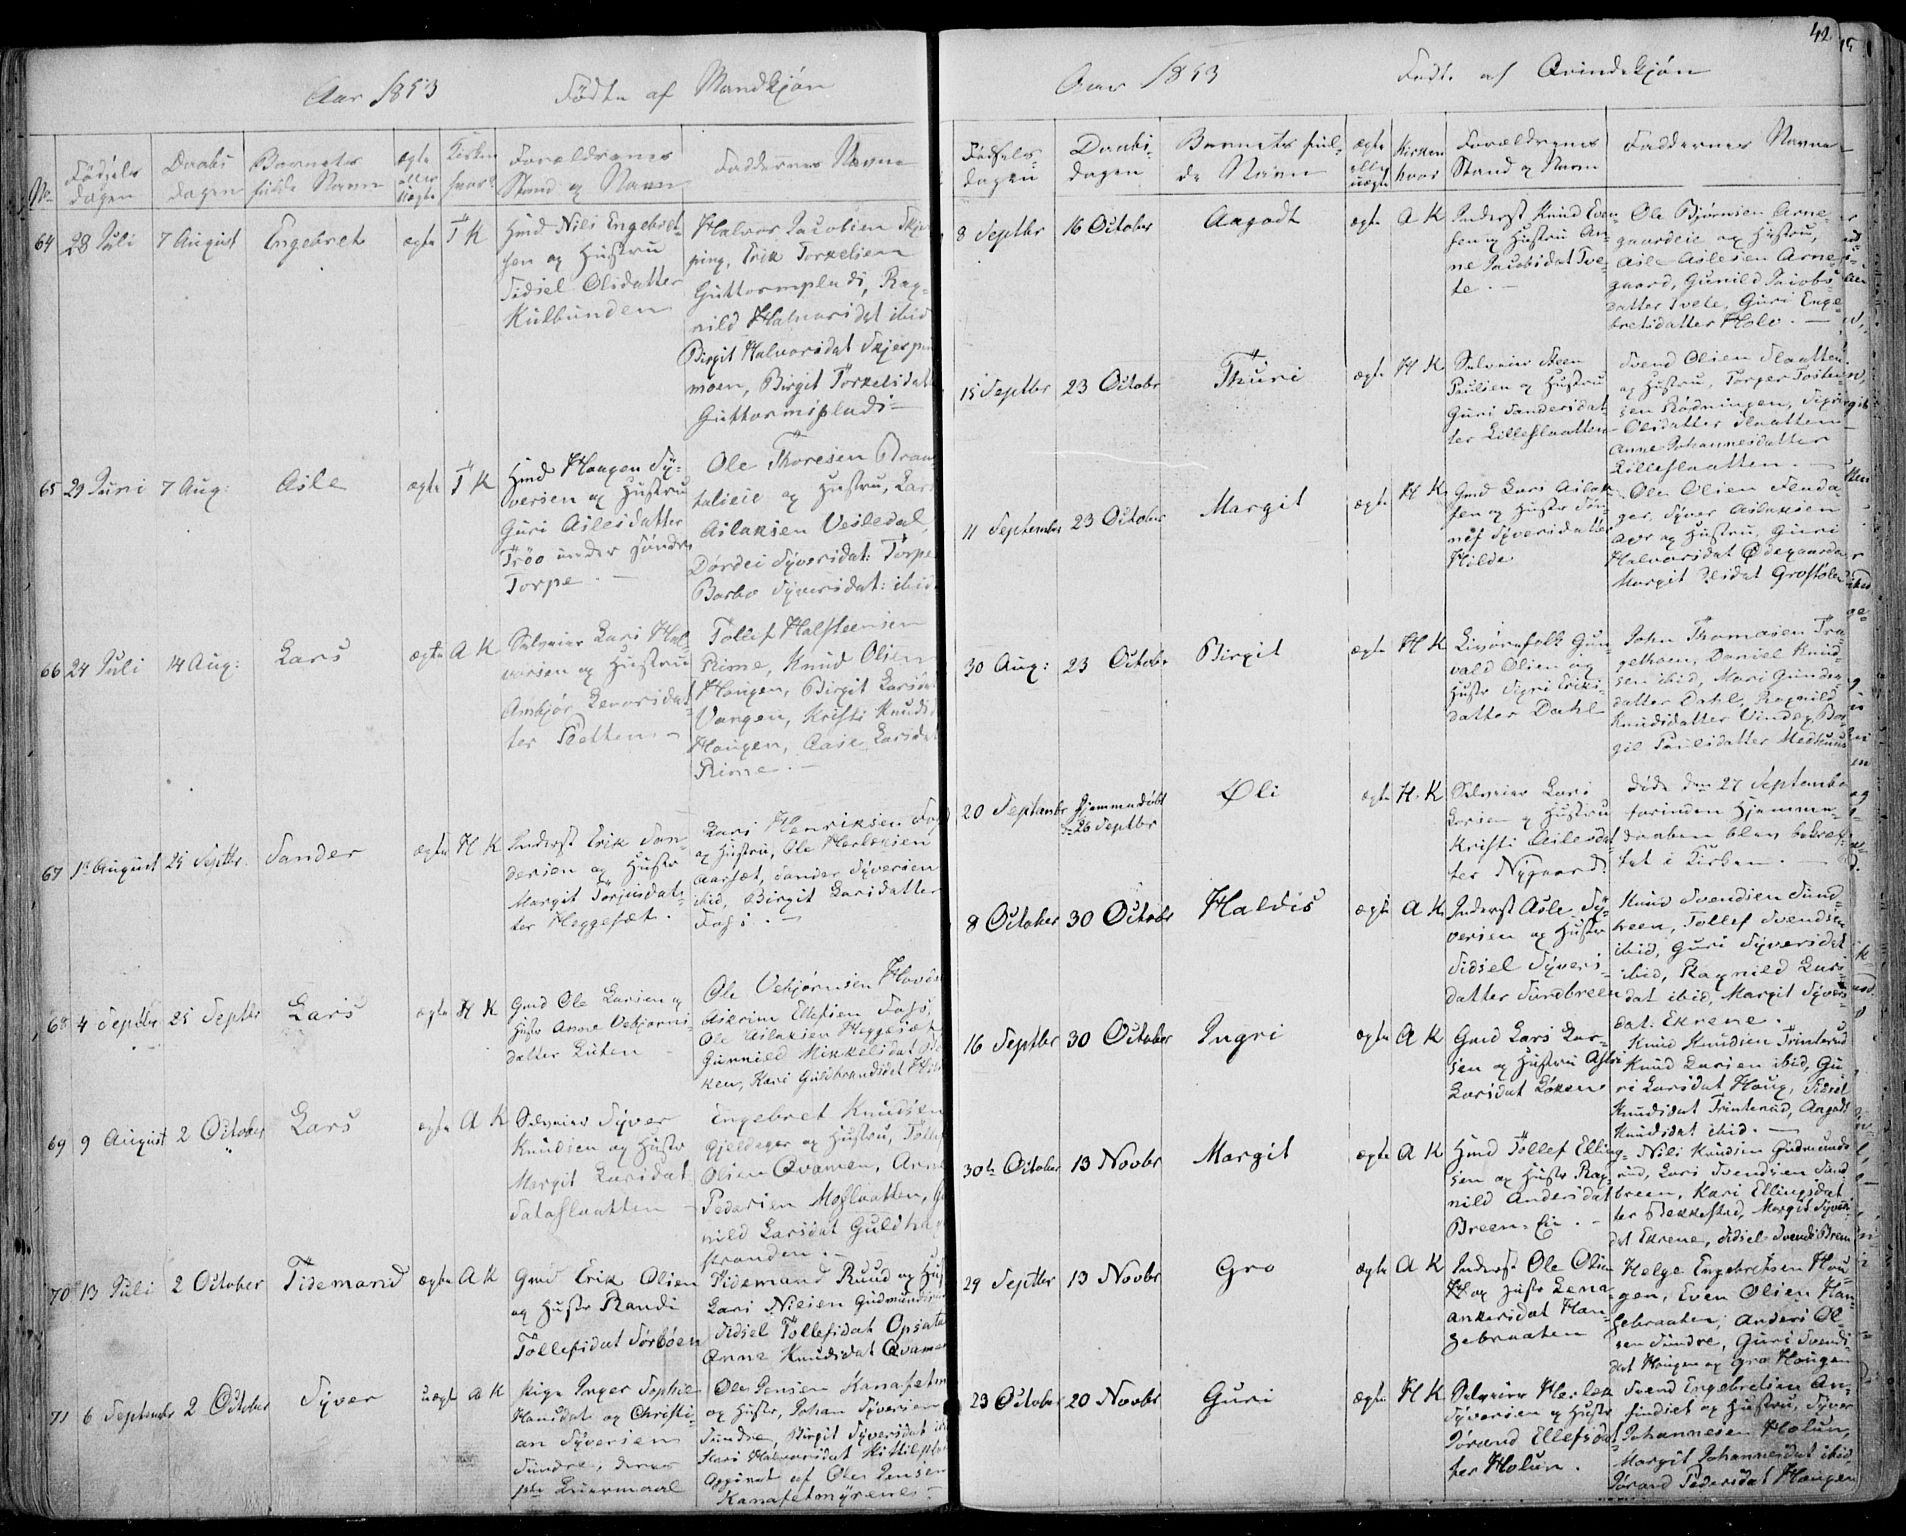 Aar 1853 Fødte af Mandkjøn
No Fødsels dagen
Daabs dagen
Barnets fulde Navn
ægte eller uægte
Kirken hvor?
Forældrenes Stand og Navn
Faddernes Navne
64 28 Juli 7 August Engebret ægte T K
Hmd Nils Engebret-
sen og Hustru
Sidsel Olsdatter
Kulbunden
Halvor Jacobsen
Erik Torkelsen
Guttormsplads, Rag-
nild Halvorsdat ibid
Birgit Halvorsdat
moen, Birgit Torkelsdat
Guttormsplads
65 29 Juni 7 Aug: Asle ægte T K
Hmd Haagen Sy-
versen og Hustru
Guri Aslesdatter
Trøo under søndre
Torpe.
Ole Thoresen
og Hustru, Lars
Aslaksen Vesledal
Dordei Syversdat: Torpe
Barbo Syversdat: ibid
66 24 Juli 14 Aug: Lars ægte A K
Selveier Lars Hal-
vorsen og Hustru
Ambjør
ter
Tollef Halsteensen
Rime, Knud Olsen
Haugen, Birgit Larsdat
Vangen, Kristi Knudsd
Haugen, Aase Larsdat
Rime.
67 1st August 25 Septbr. Sander ægte H K
Inderst Erik San-
dersen og Hustr
Margit Torjusdat-
ter Heggesæt.
Lars Henriksen
og Hustru, Ole Herbrsen
Aarset, Sander Syversen
ibid, Birgit Larsdatter
Foss.
68 4 Septbr 25 Septbr Lars ægte H K
Gmd Ole Larsen og
Hustr Anne Vebjørns-
datter
Ole Vebjørnsen
Askrim Ellefsen Foss,
Ole Aslaksen Heggesæt
Gunnild Mikkelsdat
ken, Kari Guldbrandsdat
69 9 August 2 October Lars ægte A K
Selveier Syver
Knudsen og Hustr
Margit Larsdat
Sataslaatten
Engebret Knudsen
Gjeldager og Hustru, Tollef
Olsen Qvamen, Arne
Pedersen Moslaatten,
nild Larsdat Guldhag
stranden.
70 13 Juli 2 October Tidemand ægte A K
Gmd Erik Olsen
og Hustr Randi
Tollefsdat Sørbøen
Tidemand Ruud og Hus
Lars Nilsen Gudmundsrud
Sidsel Tollefsdat Opsata
Anne Knudsdat Qvamen
71 6 September 2 October Syver uægte A K
Pige Inger Sophie
Hansdat og Christi-
an Syversen
Sundre, deres
Ole Jensen Kanafetmyr
og Hustr, Johan Syversen
Sundre, Birgit Syversdat ibid
Kari Halvorsdat
Opgivet af Ole Jensen
Kanafetmyrenes
42
Aar 1853 Fødte af Qvindekjøn
Fødsels-
dagen
Daabs-
dagen
Barnets ful-
de Navn
ægte eller uægte
Kirken hvor
Forældrenes Stand og Navn
Faddernes Navne
8 Septbr 16 October Aagodt ægte A K
Inderst Knud Even-
sen og Hustru An-
ne Jacobsdat Tve-
te.
Ole Bjørnsen Arne-
gaardeie og Hustru,
Asle Aslesen Arne-
gaard, Gunild Jacobs-
datter Tvete, Guri Enge-
bretsdatter Holo.
15 Septbr 23 Octobr Thuri ægte H K
Selveier Steen
Paulsen og Hustru
Guri Sandersdat-
ter Lilleslaatten
Svend Olsen Slaatten
og Hustru, Torger Tosten-
sen Rødningen, Sigri
Olsdatter Slaatten
Anne Johannesdatter
Lilleslaatten.
11 September 23 October Margit ægte H K
Gmd Lars Aslak-
sen og Hustr Søn-
nøf Syversdatter
Hilde
Ole Olsen Fenda-
ger, Syver Aslaksen
og Hustru, Guri
Halvorsdat Ødegaarden
Margit Olsdat Grostølen
30 Aug: 23 Octobr Birgit ægte H K
Gun-
vald Olsen og
Hustr Sigri Eriks-
datter Dahl
John Thomasen Tra-
gethoen, Daniel Knud-
sen ibid, Mari Gunder-
datter Dahl, Ragnild
Knudsdatter Vindeg Bir-
git Paulsdatter
20 September Hjemmedøbt
26 Septbr Øli ægte H. K
Selveier Lars
Larsen og Hustru
Kristi Aslesdat-
ter Nygaard
døde den 27 September
forinden Hjemme-
daaben blev bekræf-
tet i Kirken.
8 October 30 Octobr Haldis ægte A K
Inderst Asle Sy-
versen og Hustr
Sidsel Syvers-
datter Sundbreen
Knud Svendsen Sund-
breen, Tollef Svendsen
ibid, Guri Syversdat
ibid, Ragnild Lars-
dat ibid, Margit Syvers-
dat. Ekrene.
16 Septbr 30 October Ingri ægte A K
Gmd Lars Lar-
sen og Hustru Astri
Larsdat Løken
Knud Knudsen Trinterud
Knud Larsen ibid, Gu-
ri Larsdat Haug, Sidsel
Knudsdat Trinterud, Aagodt
Knudsdat ibid.
30te October 13 Novbr Margit ægte A K
Hmd Tollef Elling-
sen og Hustr Rag-
nild Andersdat
Breen. Eie.
Nils Knudsen Gudmunds-
rud, Lars Svendsen Sund-
breen, Kari Ellingsdat-
ter Bekkestad, Margit Syvers-
dat Ekrene, Sidsel Svendsd Breen
29 Septbr 13 Novbr Gro ægte A K
Inderst Ole Olsen
og Hustr Lena
Ankersdat Han-
zebraaten
Helge Engebretsen Hau-
gen, Even Olsen Han-
zebraaten, Anders Ol-
sen Sundre, Guri Svends-
dat Haugen og Gro Haugen
23 October 20 Novbr Guri ægte H K
Selveier Herlek
Syversen og Hustr
Jørand Ellefsdat-
ter Holun.
Svend Engebretsen An-
findset og Hustru, Syver
Johannesen Holun,
Margit Johannesdat ibid
Jørand Pedersdat Haugen